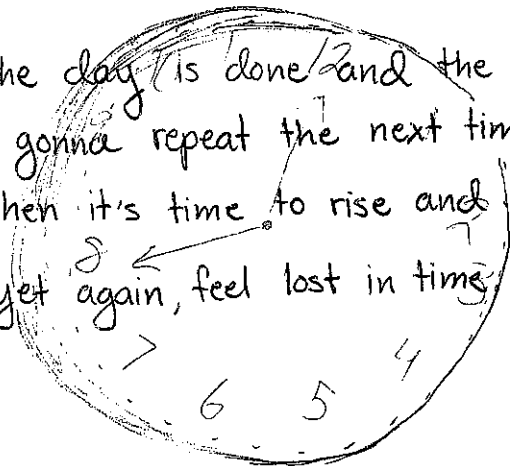 he day is done and the
gonna repeat the next tim
hen it's time to rise and
yet again, feel lost in time
12
8
7
6
5
4